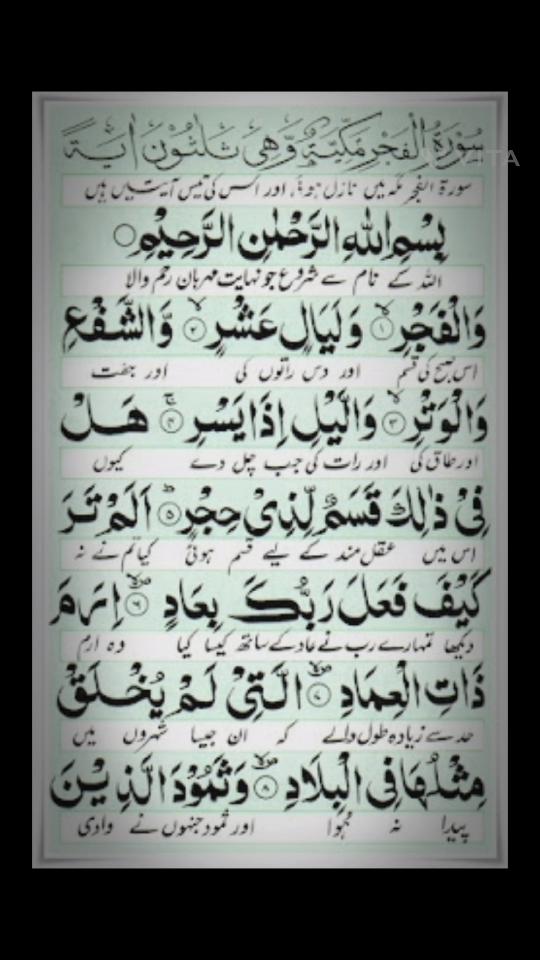 سُوْرَةُ الْفَجْرِ مَكِّيَّةٌ وَّهِيَ ثَلٰثُوْنَ اٰيَةً
VITA
سورۃ الفجر مکہ میں نازل ہوئی، اور اس کی تیس آیتیں ہیں
بِسْمِ اللّٰهِ الرَّحْمٰنِ الرَّحِيْمِ ۝
اللہ کے نام سے شروع جو نہایت مہربان رحم والا
وَالْفَجْرِ ۙ﴿۱﴾ وَلَيَالٍ عَشْرٍ ۙ﴿۲﴾ وَّالشَّفْعِ
اس صبح کی قسم اور دس راتوں کی اور جفت
وَالْوَتْرِ ۙ﴿۳﴾ وَالَّيْلِ اِذَا يَسْرِ ۚ﴿۴﴾ هَلْ
اور طاق کی اور رات کی جب چل دے کیوں
فِيْ ذٰلِكَ قَسَمٌ لِّذِيْ حِجْرٍ ؕ﴿۵﴾ اَلَمْ تَرَ
اس میں عقل مند کے لیے قسم ہوئی کیا تم نے نہ
كَيْفَ فَعَلَ رَبُّكَ بِعَادٍ ۙ﴿۶﴾ اِرَمَ
دیکھا تمہارے رب نے عاد کے ساتھ کیسا کیا وہ ارم
ذَاتِ الْعِمَادِ ۙ﴿۷﴾ الَّتِيْ لَمْ يُخْلَقْ
حد سے زیادہ طول والے کہ ان جیسا شہروں میں
مِثْلُهَا فِي الْبِلَادِ ۙ﴿۸﴾ وَثَمُوْدَ الَّذِيْنَ
پیدا نہ ہوا اور ثمود جنہوں نے وادی